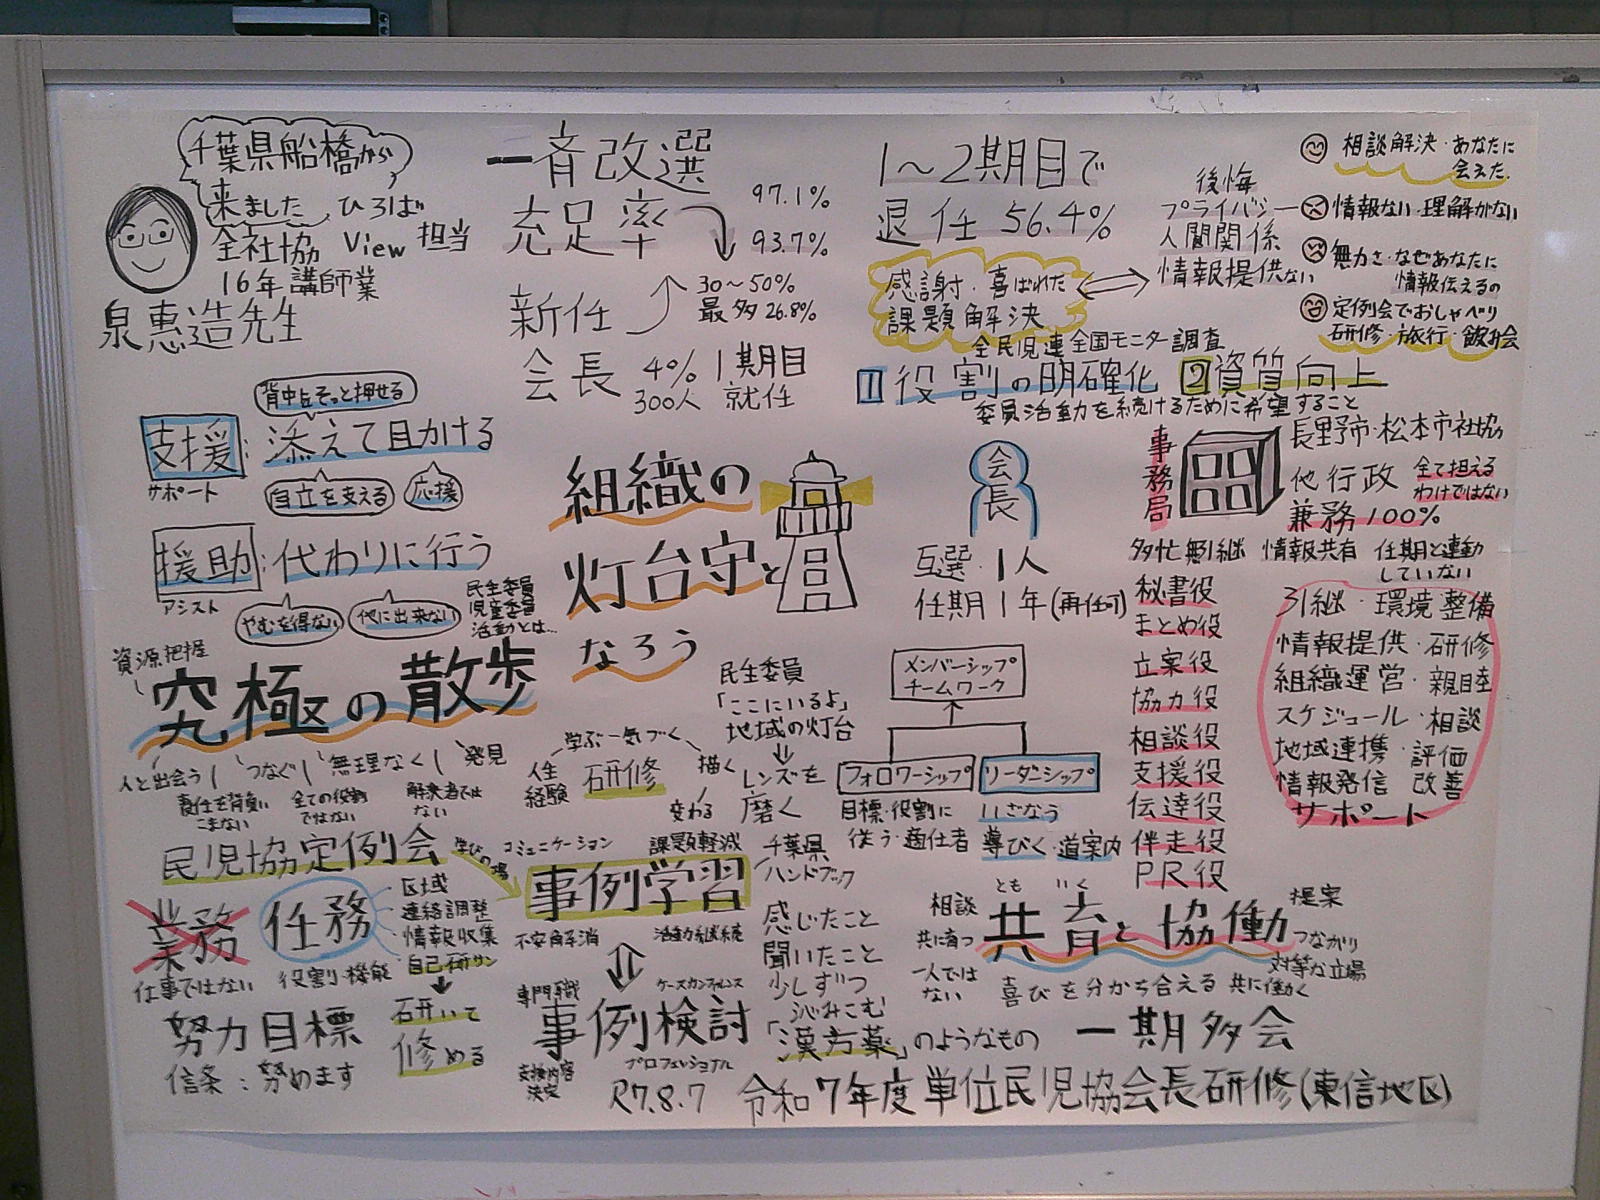 千葉県船橋から
来ました ひろば
全社協 View 担当
16年講師業
泉惠造先生
一斉改選
充足率
97.1%
93.7%
新任
30〜50%
最多26.8%
会長 4% 1期目
300人 就任
1〜2期目で
退任 56.4%
感謝・喜ばれた
課題解決
後悔
プライバシー
人間関係
情報提供ない
相談解決・あなたに
会えた.
情報ない・理解がない
無力さ・なぜあなたに
情報伝えるの
定例会でおしゃべり
研修・旅行・飲み会
全民児連全国モニター調査
1 役割の明確化 2 資質向上
委員活動を続けるために希望すること
背中をそっと押せる
支援: 添えて助ける
サポート
自立を支える
応援
援助:代わりに行う
アシスト
やむを得ない
他に出来ない
民生委員
児童委員
活動とは…
資源把握
究極の散歩
人と出会う
つなぐ
無理なく
発見
責任を背負い
こまない
全ての役割
ではない
解決者では
ない
組織の
灯台守と
なろう
民生委員
「ここにいるよ」
地域の灯台
レンズを
磨く
学ぶ―気づく
人生
経験
研修
描く
変わる
会長
互選・1人
任期1年(再任可)
メンバーシップ
チームワーク
フォロワーシップ
リーダーシップ
目標・役割に
従う・適任者
いざなう
導びく・道案内
事務局
長野市・松本市社協
他行政
全て担える
わけではない
兼務100%
多忙 無引継 情報共有 任期と連動
していない
秘書役
まとめ役
立案役
協力役
相談役
支援役
伝達役
伴走役
PR役
引継・環境整備
情報提供・研修
組織運営・親睦
スケジュール・相談
地域連携・評価
情報発信 改善
サポート
民児協定例会
学びの場
コミュニケーション
課題軽減
事例学習
不安解消
活動継続
業務
任務
区域
連絡調整
情報収集
自己研サン
仕事ではない
役割・機能
研いで
修める
努力目標
信条:努めます
専門職
ケースカンファレンス
事例検討
支援内容
決定
プロフェショナル
千葉県
ハンドブック
感じたこと
聞いたこと
少しずつ
沁みこむ
「漢方薬」のようなもの
相談
とも いく
共育と協働
提案
共に育つ
つながり
対等な立場
一人では
ない
喜びを分かち合える 共に働く
一期多会
R7.8.7 令和7年度単位民児協会長研修(東信地区)